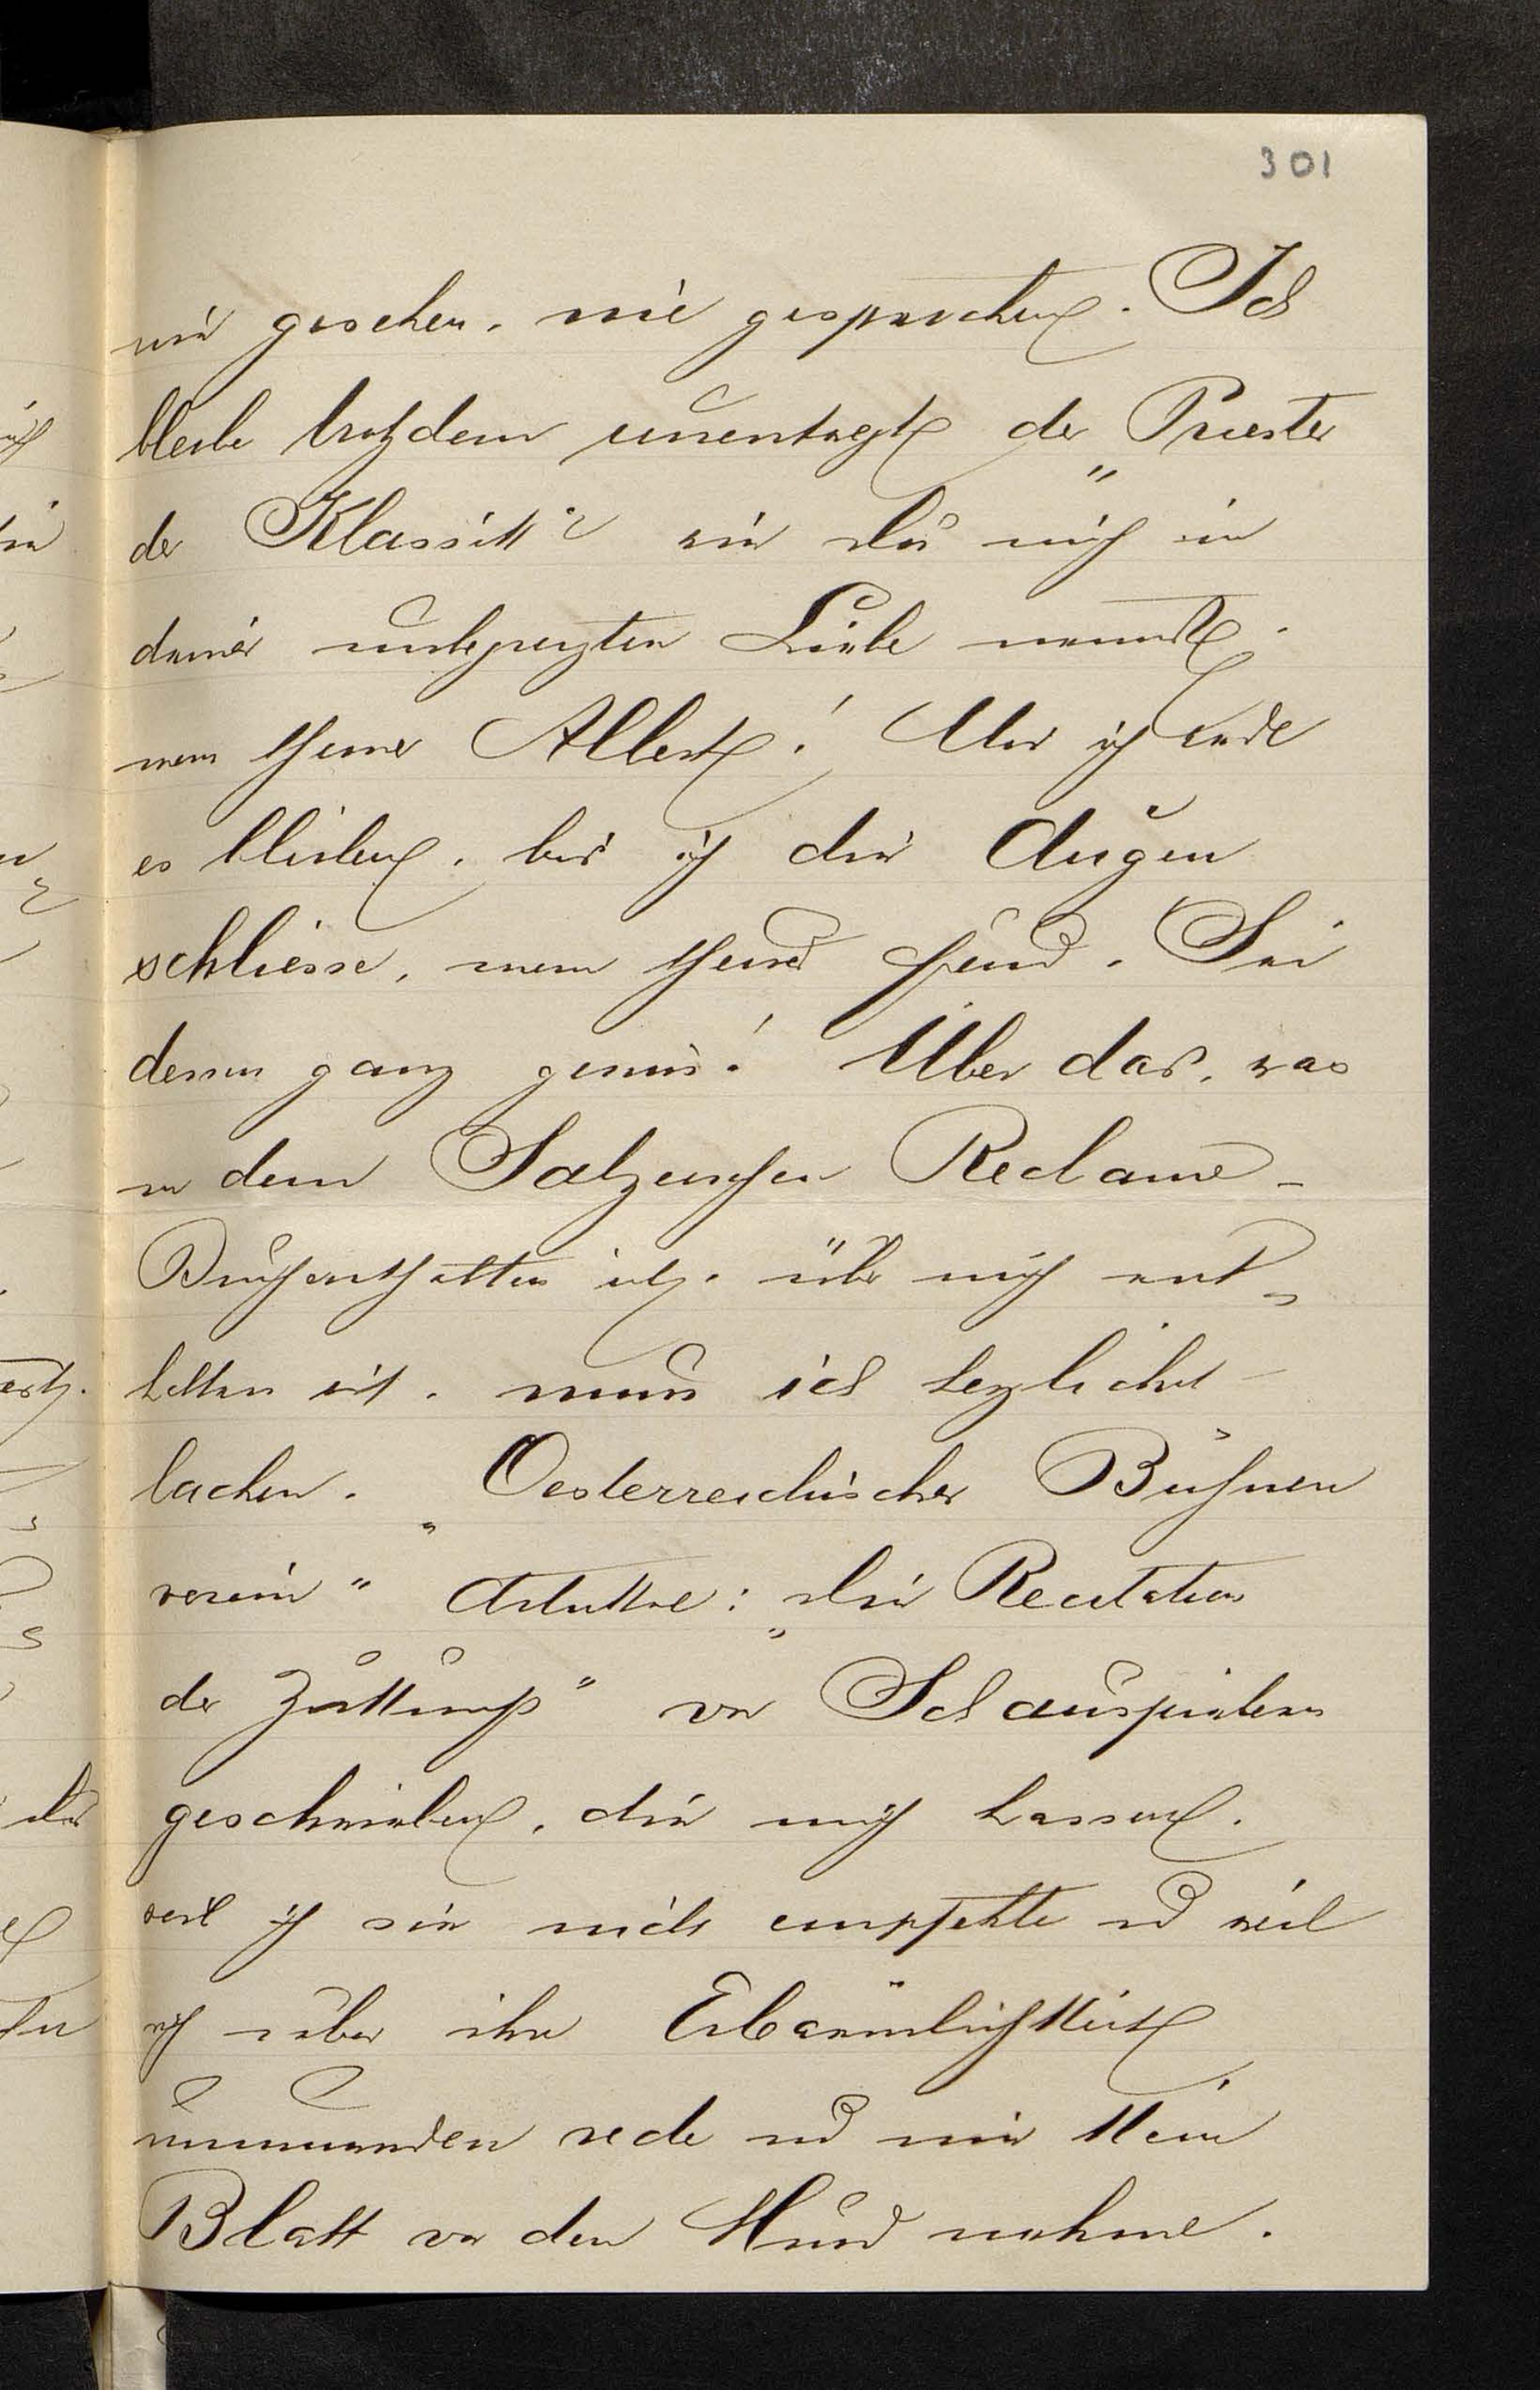 301
nie gesehen, nie gesprochen. Ich
bleibe trotzdem unentwegt der „Priester
der Klassik“ wie du mich in
deiner unbegrenzten Liebe nennst,
mein theurer Albert! Und ich werde
es bleiben, bis ich die Augen
schliesse, mein theurer Freund. Sei
dessen ganz gewiss! Über das, was
in dem Salzunger Reclame-
über mich ent-
halten ist, muss ich herzlichst
lachen. „Oesterreichischer Bühnen
verein“ Artikel: „Die Recitation
der“ von Schauspielern
geschrieben, die mich hassen,
weil ich sie nicht empfehle und weil
ich über ihre Erbärmlichkeit
unumwunden rede und nie kein
Blatt vor den Mund nehme.